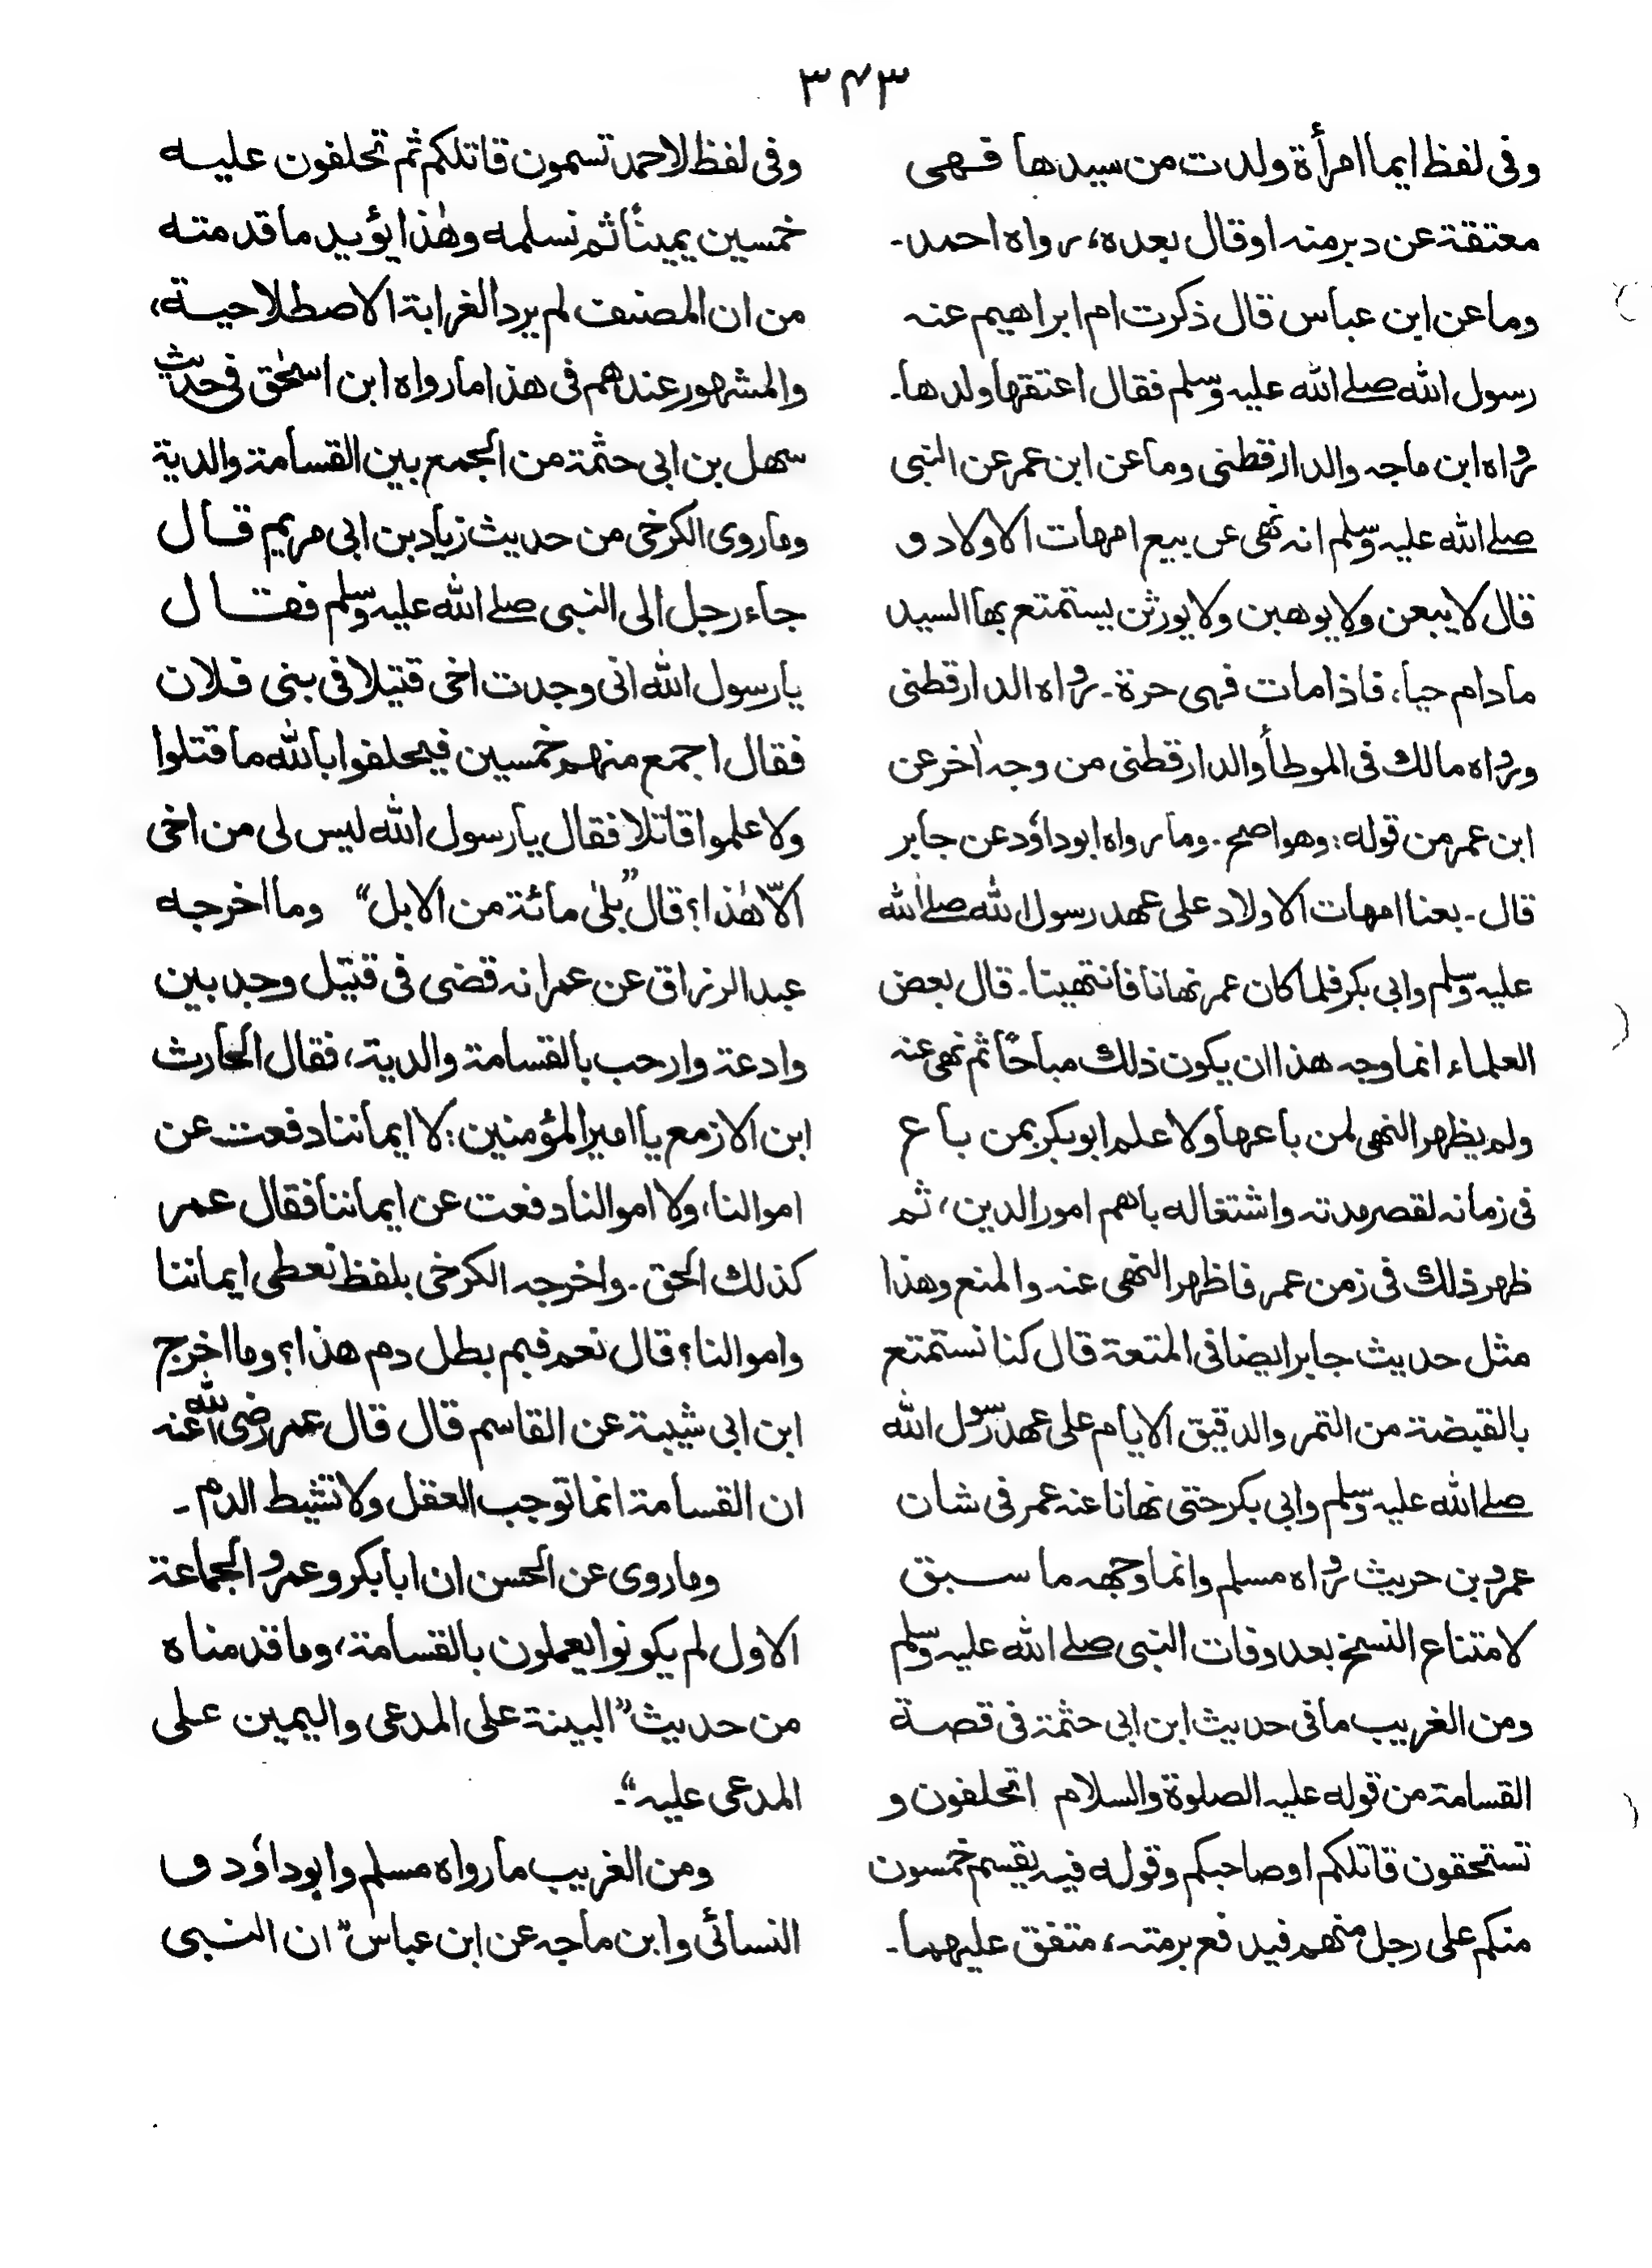 ۳۴۳
وفى لفظ ايما امرأة ولدت من سيدها فهى
معتقة عن دبر منه اوقال بعده، رواه احمد۔
وما عن ابن عباس قال ذكرت ام ابراهيم عنه
رسول الله صلے الله عليه وسلم فقال اعتقها ولدها۔
رواه ابن ماجه والدارقطنى وما عن ابن عمر عن النبى
صلے الله عليه وسلم انه نهى عن بيع امهات الاولاد و
قال لا يبعن ولا يوهبن ولا يورثن يستمتع بها السيد
مادام حيا، فاذا مات فهى حرة۔ رواه الدارقطنى
ورواه مالك فى الموطأ والدارقطنى من وجه اٰخر عن
ابن عمر من قوله: وهو اصح۔ وما رواه ابوداؤد عن جابر
قال۔ بعنا امهات الاولاد على عهد رسول الله صلے الله
عليه وسلم وابى بكر فلما كان عمر نهانا فانتهينا۔ قال بعض
العلماء انما وجه هذا ان يكون ذلك مباحًا ثم نهى عنه
ولم يظهر النهى لمن باعها ولا علم ابوبكر بمن باع
فى زمانه لقصر مدته واشتغاله باهم امور الدين، ثم
ظهر ذلك فى زمن عمر فاظهر النهى عنه والمنع وهذا
مثل حديث جابر ايضا فى المتعة قال كنا نستمتع
بالقبضة من التمر والدقيق الايام على عهد رسول الله
صلے الله عليه وسلم وابى بكر حتى نهانا عنه عمر فى شان
عمرو بن حريث رواه مسلم وانما وجهه ما سبق
لامتناع النسخ بعد وفات النبى صلے الله عليه وسلم
ومن الغريب ما فى حديث ابن ابى حثمة فى قصة
القسامة من قوله عليه الصلوة والسلام اتحلفون و
تستحقون قاتلكم او صاحبكم وقوله فيه يقسم خمسون
منكم على رجل منهم فيدفع برمته، متفق عليهما۔
وفى لفظ لاحمد تسمون قاتلكم ثم تحلفون عليه
خمسين يمينًا ثم نسلمه وهٰذا يؤيد ما قدمته
من ان المصنف لم يرد الغرابة الاصطلاحية،
والمشهور عندهم فى هذا ما رواه ابن اسحٰق فى حديث
سهل بن ابى حثمة من الجمع بين القسامة والدية
وما روى الكرخى من حديث زياد بن ابى مريم قال
جاء رجل الى النبى صلے الله عليه وسلم فقال
يا رسول الله انى وجدت اخى قتيلا فى بنى فلان
فقال اجمع منهم خمسين فيحلفوا بالله ما قتلوا
ولا علموا قاتلا فقال يا رسول الله ليس لى من اخى
الاّ هٰذا؟ قال ”بلٰى مائة من الابل“ وما اخرجه
عبد الرزاق عن عمر انه قضى فى قتيل وجد بين
وادعة وارحب بالقسامة والدية، فقال الحارث
ابن الازمع يا امير المؤمنين: لا ايماننا دفعت عن
اموالنا، ولا اموالنا دفعت عن ايماننا فقال عمر
كذلك الحق۔ واخرجه الكرخى بلفظ نعطى ايماننا
واموالنا؟ قال نعم فبم بطل دم هذا؟ وما اخرج
ابن ابى شيبة عن القاسم قال قال عمر رضى الله عنه
ان القسامة انما توجب العقل ولا تشيط الدم۔
وما روى عن الحسن ان ابا بكر وعمر والجماعة
الاول لم يكونوا يعملون بالقسامة، وما قدمناه
من حديث ”البينة على المدعى واليمين على
المدعى عليه“۔
ومن الغريب ما رواه مسلم وابوداؤد و
النسائى وابن ماجه عن ابن عباس” ان النبى